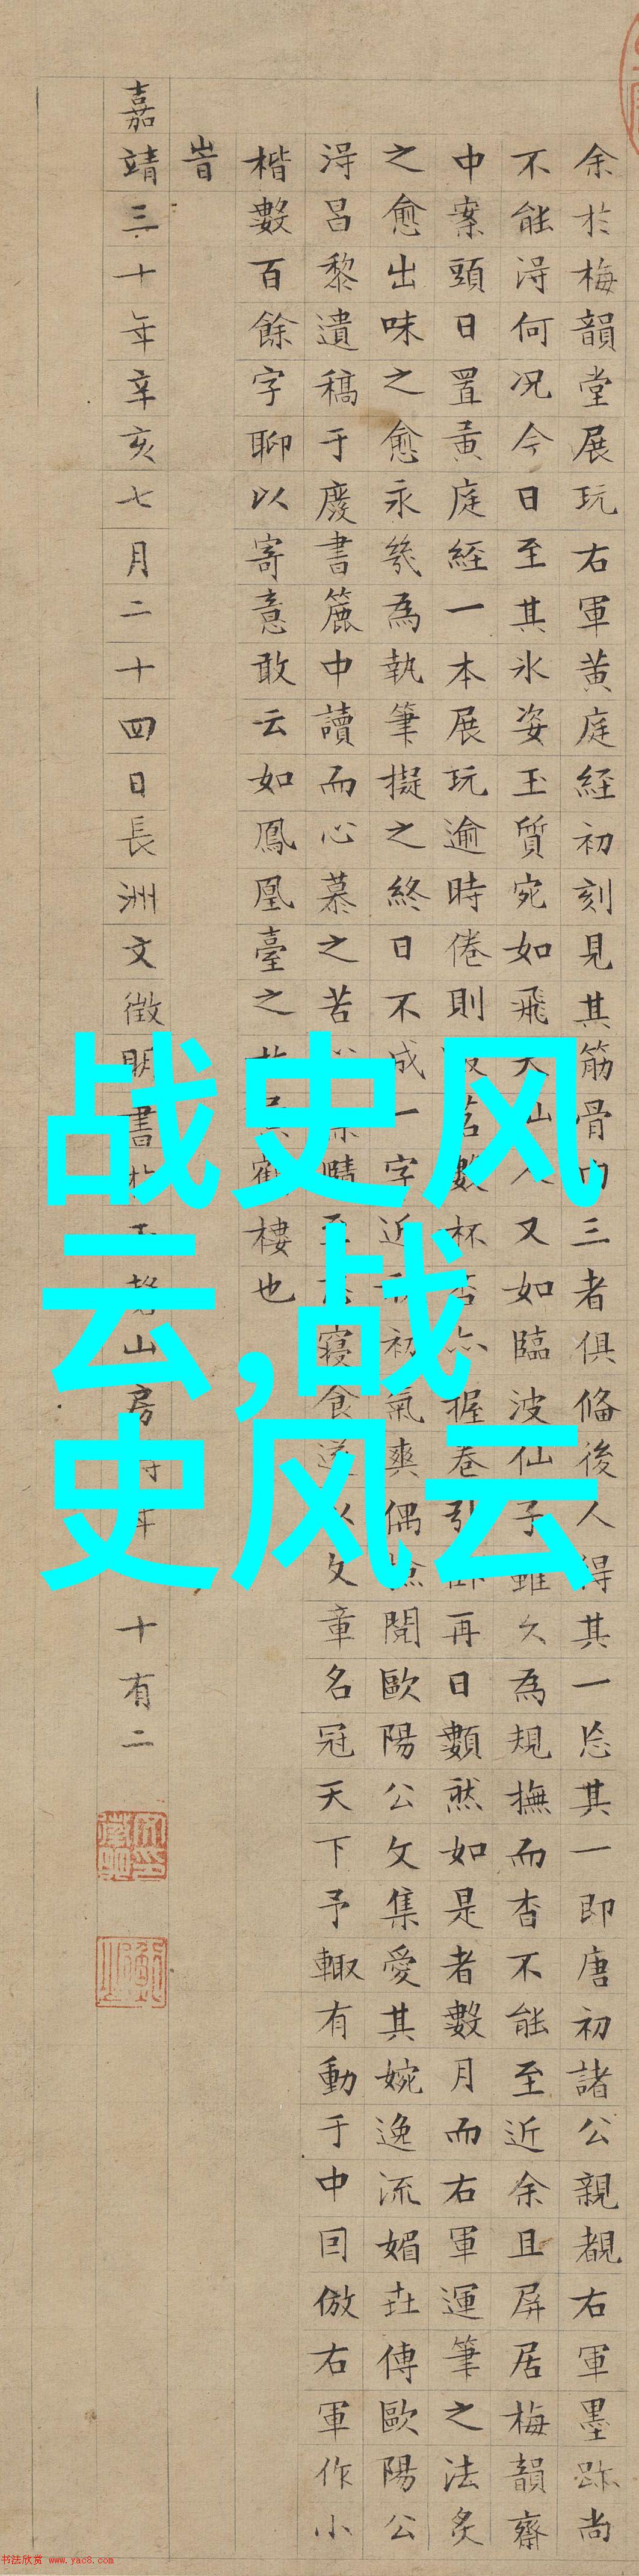 战史风
云,战
史风云
余於梅韻堂展玩右軍黄庭經初刻見其筋骨肉三者俱偹後人得其一忘其一即唐初諸公親覩右軍墨跡尚
不能淂何况今日至其氷姿玉質宛如飛天仙人又如臨波仙子雖久為規撫而杳不能至近余且屏居梅韻齋
中案頭日置黄庭經一本展玩逾時倦則茗數杯否亦握卷引再日數然如是者數月而右軍運筆之法炙
之愈出味之愈永為執筆擬之終日不成一字近初氣爽偶閱歐陽公文集愛其婉逸流媚傳歐陽公
淂昌黎遺稿于廢書簏中讀而心慕之苦寢食以文章名冠天下予輙有動于中囙倣右軍作小
楷數百餘字聊以寄意敢云如鳳凰臺之樓也
旹
嘉靖三十年辛亥七月二十四日長洲文徵明書山房年十有二
书法欣赏 www.yac8.com